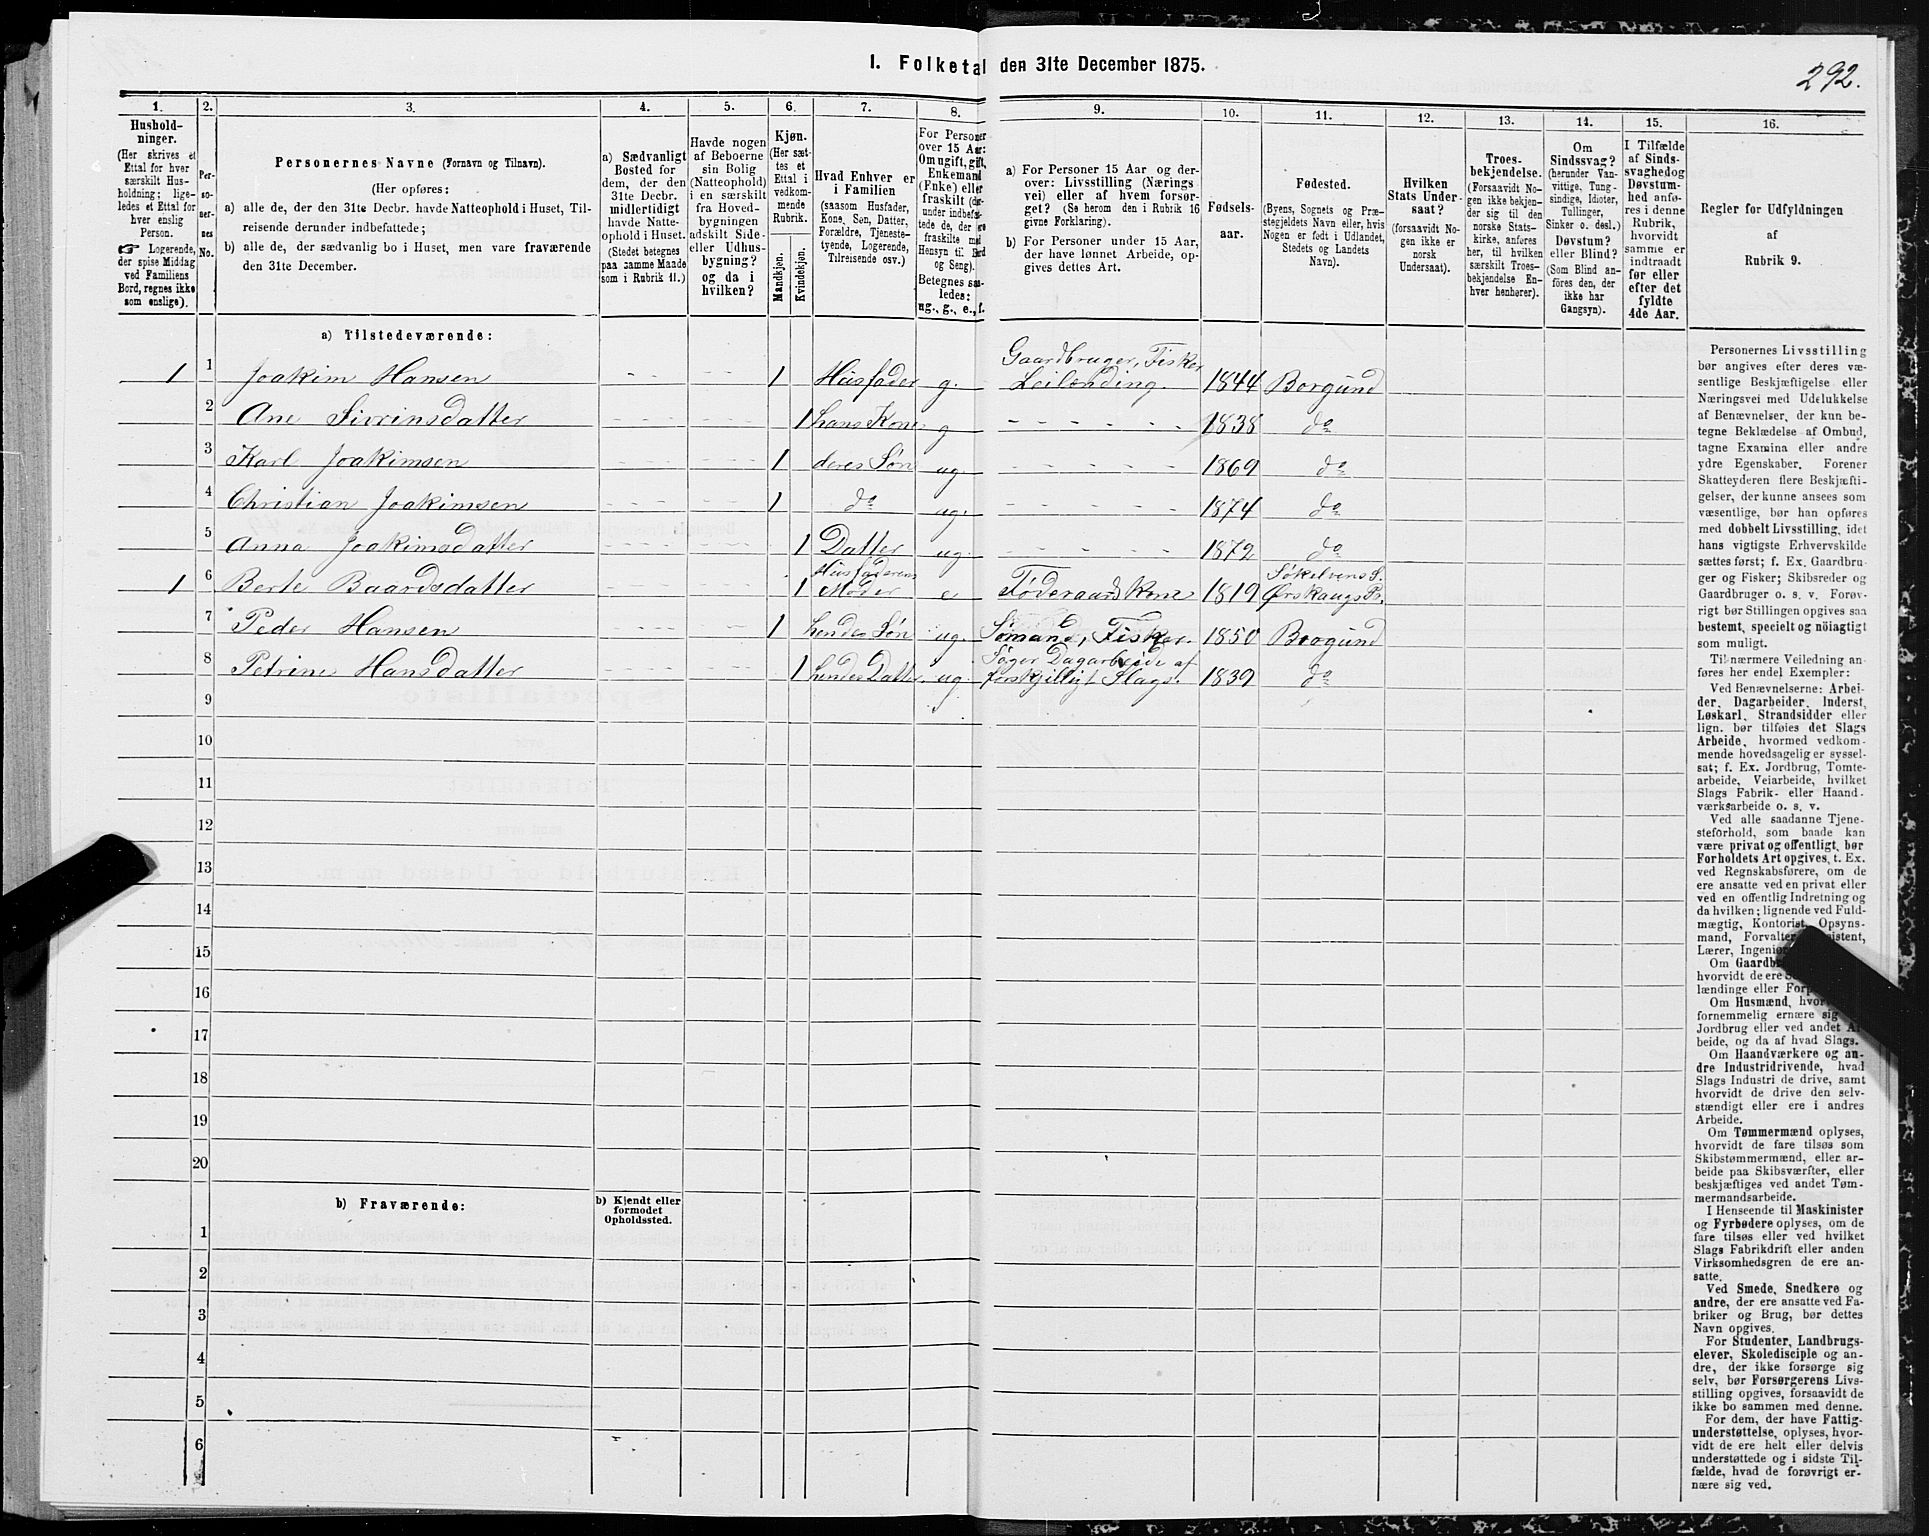 292.
1. Folketal den 31te December 1875.
1. 2. 3. 4. 5. 6. 7. 8. 9. 10. 11. 12. 13. 14. 15. 16.
Hushold-
ninger.
(Her skrives et
Ettal for hver
særskilt Hus-
holdning; lige-
ledes et Ettal for
hver enslig
Person.
☞ Logerende,
der spise Middag
ved Familiens
Bord, regnes ikke
som enslige).
Per-
so-
ner-
nes
No.
Personernes Navne (Fornavn og Tilnavn).
(Her opføres:
a) alle de, der den 31te Decbr. havde Natteophold i Huset, Til-
reisende derunder indbefattede;
b) alle de, der sædvanlig bo i Huset, men vare fraværende
den 31te December.
a) Sædvanligt
Bosted for
dem, der den
31te Decbr.
midlertidigt
havde Natte-
ophold i Huset.
(Stedet betegnes
paa samme Maade
som i Rubrik 11.)
Havde nogen
af Beboerne
sin Bolig
(Natteophold)
i en særskilt
fra Hoved-
bygningen
adskilt Side-
eller Udhus-
bygning?
og da i
hvilken?
Kjøn.
(Her sæt-
tes et
Ettal i
vedkom-
mende
Rubrik.
Mandkjøn.
Kvindekjøn.
Hvad Enhver er
i Familien
(saasom Husfader,
Kone, Søn, Datter,
Forældre, Tjeneste-
tyende, Logerende,
Tilreisende osv.)
For Personer
over 15 Aar:
Om ugift, gift,
Enkemand
(Enke) eller
fraskilt (der-
under indbefat-
tede de, der ere
fraskilte med
Hensyn til Bord
og Seng).
Betegnes saa-
ledes:
ug., g., e., f.
a) For Personer 15 Aar og der-
over: Livsstilling (Nærings-
vei) eller af hvem forsør-
get? (Se herom den i Rubrik 16
givne Forklaring).
b) For Personer under 15 Aar,
der have lønnet Arbeide, op-
gives dettes Art.
Fødsels-
aar.
Fødested.
(Byens, Sognets og Præ-
stegjeldets Navn eller, hvis
Nogen er født i Udlandet,
Stedets og Landets
Navn).
Hvilken
Stats Under-
saat?
(forsaavidt No-
gen ikke er
norsk
Undersaat).
Troes-
bekjendelse.
(Forsaavidt No-
gen ikke bekjen-
der sig til den
norske Stats-
kirke, anføres
her, til hvilken
særskilt Troes-
bekjendelse En-
hver henhører).
Om
Sindssvag?
(herunder Van-
vittige, Tung-
sindige, Idioter,
Tullinger,
Sinker o. desl.)
Døvstum?
eller Blind?
(Som Blind an-
føres den, der
ikke har
Gangsyn).
I Tilfælde
af Sinds-
svaghed og
Døvstum-
hed anfø-
res i denne
Rubrik,
hvorvidt
samme er
indtraadt
før eller
efter det
fyldte
4de Aar.
Regler for Udfyldningen
af
Rubrik 9.
a) Tilstedeværende:
1 1 Joakim Hansen 1 Husfader g. Gaardbruger, Fisker
Leilænding. 1844 Borgund
2 Ane Sivrinsdatter 1 hans Kone g 1838 do
3 Karl Joakimsen 1 deres Søn ug. 1869 do
4 Christian Joakimsen 1 do ug. 1874 do
5 Anna Joakimsdatter 1 Datter ug. 1872 do
1 6 Berte Baardsdatter 1 Husfaderens
Moder e Föderaadskone 1819 Søkelvens S.
Ørskaugs Ps.
7 Peder Hansen 1 hendes Søn ug. Sømand, Fisker. 1850 Borgund
8 Petrine Hansdatter 1 hendes Datter. ug. Søger Dagarbeide af
forskjelligt Slags. 1839 do
9
10
11
12
13
14
15
16
17
18
19
20
b) Fraværende:
b) Kjendt eller
formodet
Opholdssted.
1
2
3
4
5
6
Personernes Livsstilling
bør angives efter deres væ-
sentlige Beskjæftigelse eller
Næringsvei med Udelukkelse
af Benævnelser, der kun be-
tegne Beklædelse af Ombud,
tagne Examina eller andre
ydre Egenskaber. Forener
Skatteyderen flere Beskjæfti-
gelser, der kunne ansees som
væsentlige, bør han opføres
med dobbelt Livsstilling, idet
hans vigtigste Erhvervskilde
sættes først; f. Ex. Gaardbru-
ger og Fisker; Skibsreder og
Gaardbruger o. s. v. Forøv-
rigt bør Stillingen opgives saa
bestemt, specielt og nöiagtigt
som muligt.
Til nærmere Veiledning an-
føres her endel Exempler:
Ved Benævnelserne: Arbei-
der, Dagarbeider, Inderst,
Løskarl, Strandsidder eller
lign. bør tilføies det Slags
Arbeide, hvormed vedkom-
mende hovedsagelig er syssel-
sat; f. Ex. Jordbrug, Tomte-
arbeide, Veiarbeide, hvilket
Slags Fabrik- eller Haand-
værksarbeide o. s. v.
Ved alle saadanne Tjene-
steforhold, som baade kan
være privat og offentligt, bør
Forholdets Art opgives, t. Ex.
ved Regnskabsførere, om de
ere ansatte ved en privat eller
ved en offentlig Indretning og
da hvilken; lignende ved Fuld-
mægtig, Kontorist, Opsyns-
mand, Forvalter,
Lærer,
Om
hvorvidt de ere
lændinge eller
Om Husmænd,
fornemmelig ernære sig
Jordbrug eller ved andet Ar-
beide, og da af hvad Slags.
Om Haandværkere og an-
dre Industridrivende, hvad
Slags Industri de drive, samt
hvorvidt de drive den selv-
stændigt eller ere i andres
Arbeide.
Om Tømmermænd oplyses,
hvorvidt de fare tilsøs som
Skibstømmermænd, eller ar-
beide paa Skibsværfter, eller
beskjæftiges ved andet Tøm-
mermandsarbeide.
I Henseende til Maskinister
og Fyrbødere oplyses, om de
fare tilsøs eller ved hvilket
Slags Fabrikdrift eller anden
Virksomhedsgren de ere an-
satte.
Ved Smede, Snedkere og
andre, der ere ansatte ved Fa-
briker og Brug, bør dettes
Navn opgives.
For Studenter, Landbrugs-
elever, Skoledisciple og an-
dre, der ikke forsørge sig
selv, bør Forsørgerens Livs-
stilling opgives, forsaavidt de
ikke bo sammen med denne.
For dem, der have Fattig-
understøttelse, oplyses, hvor-
vidt de ere helt eller delvis
understøttede og i sidste Til-
fælde, hvad de forøvrigt er-
nære sig ved.